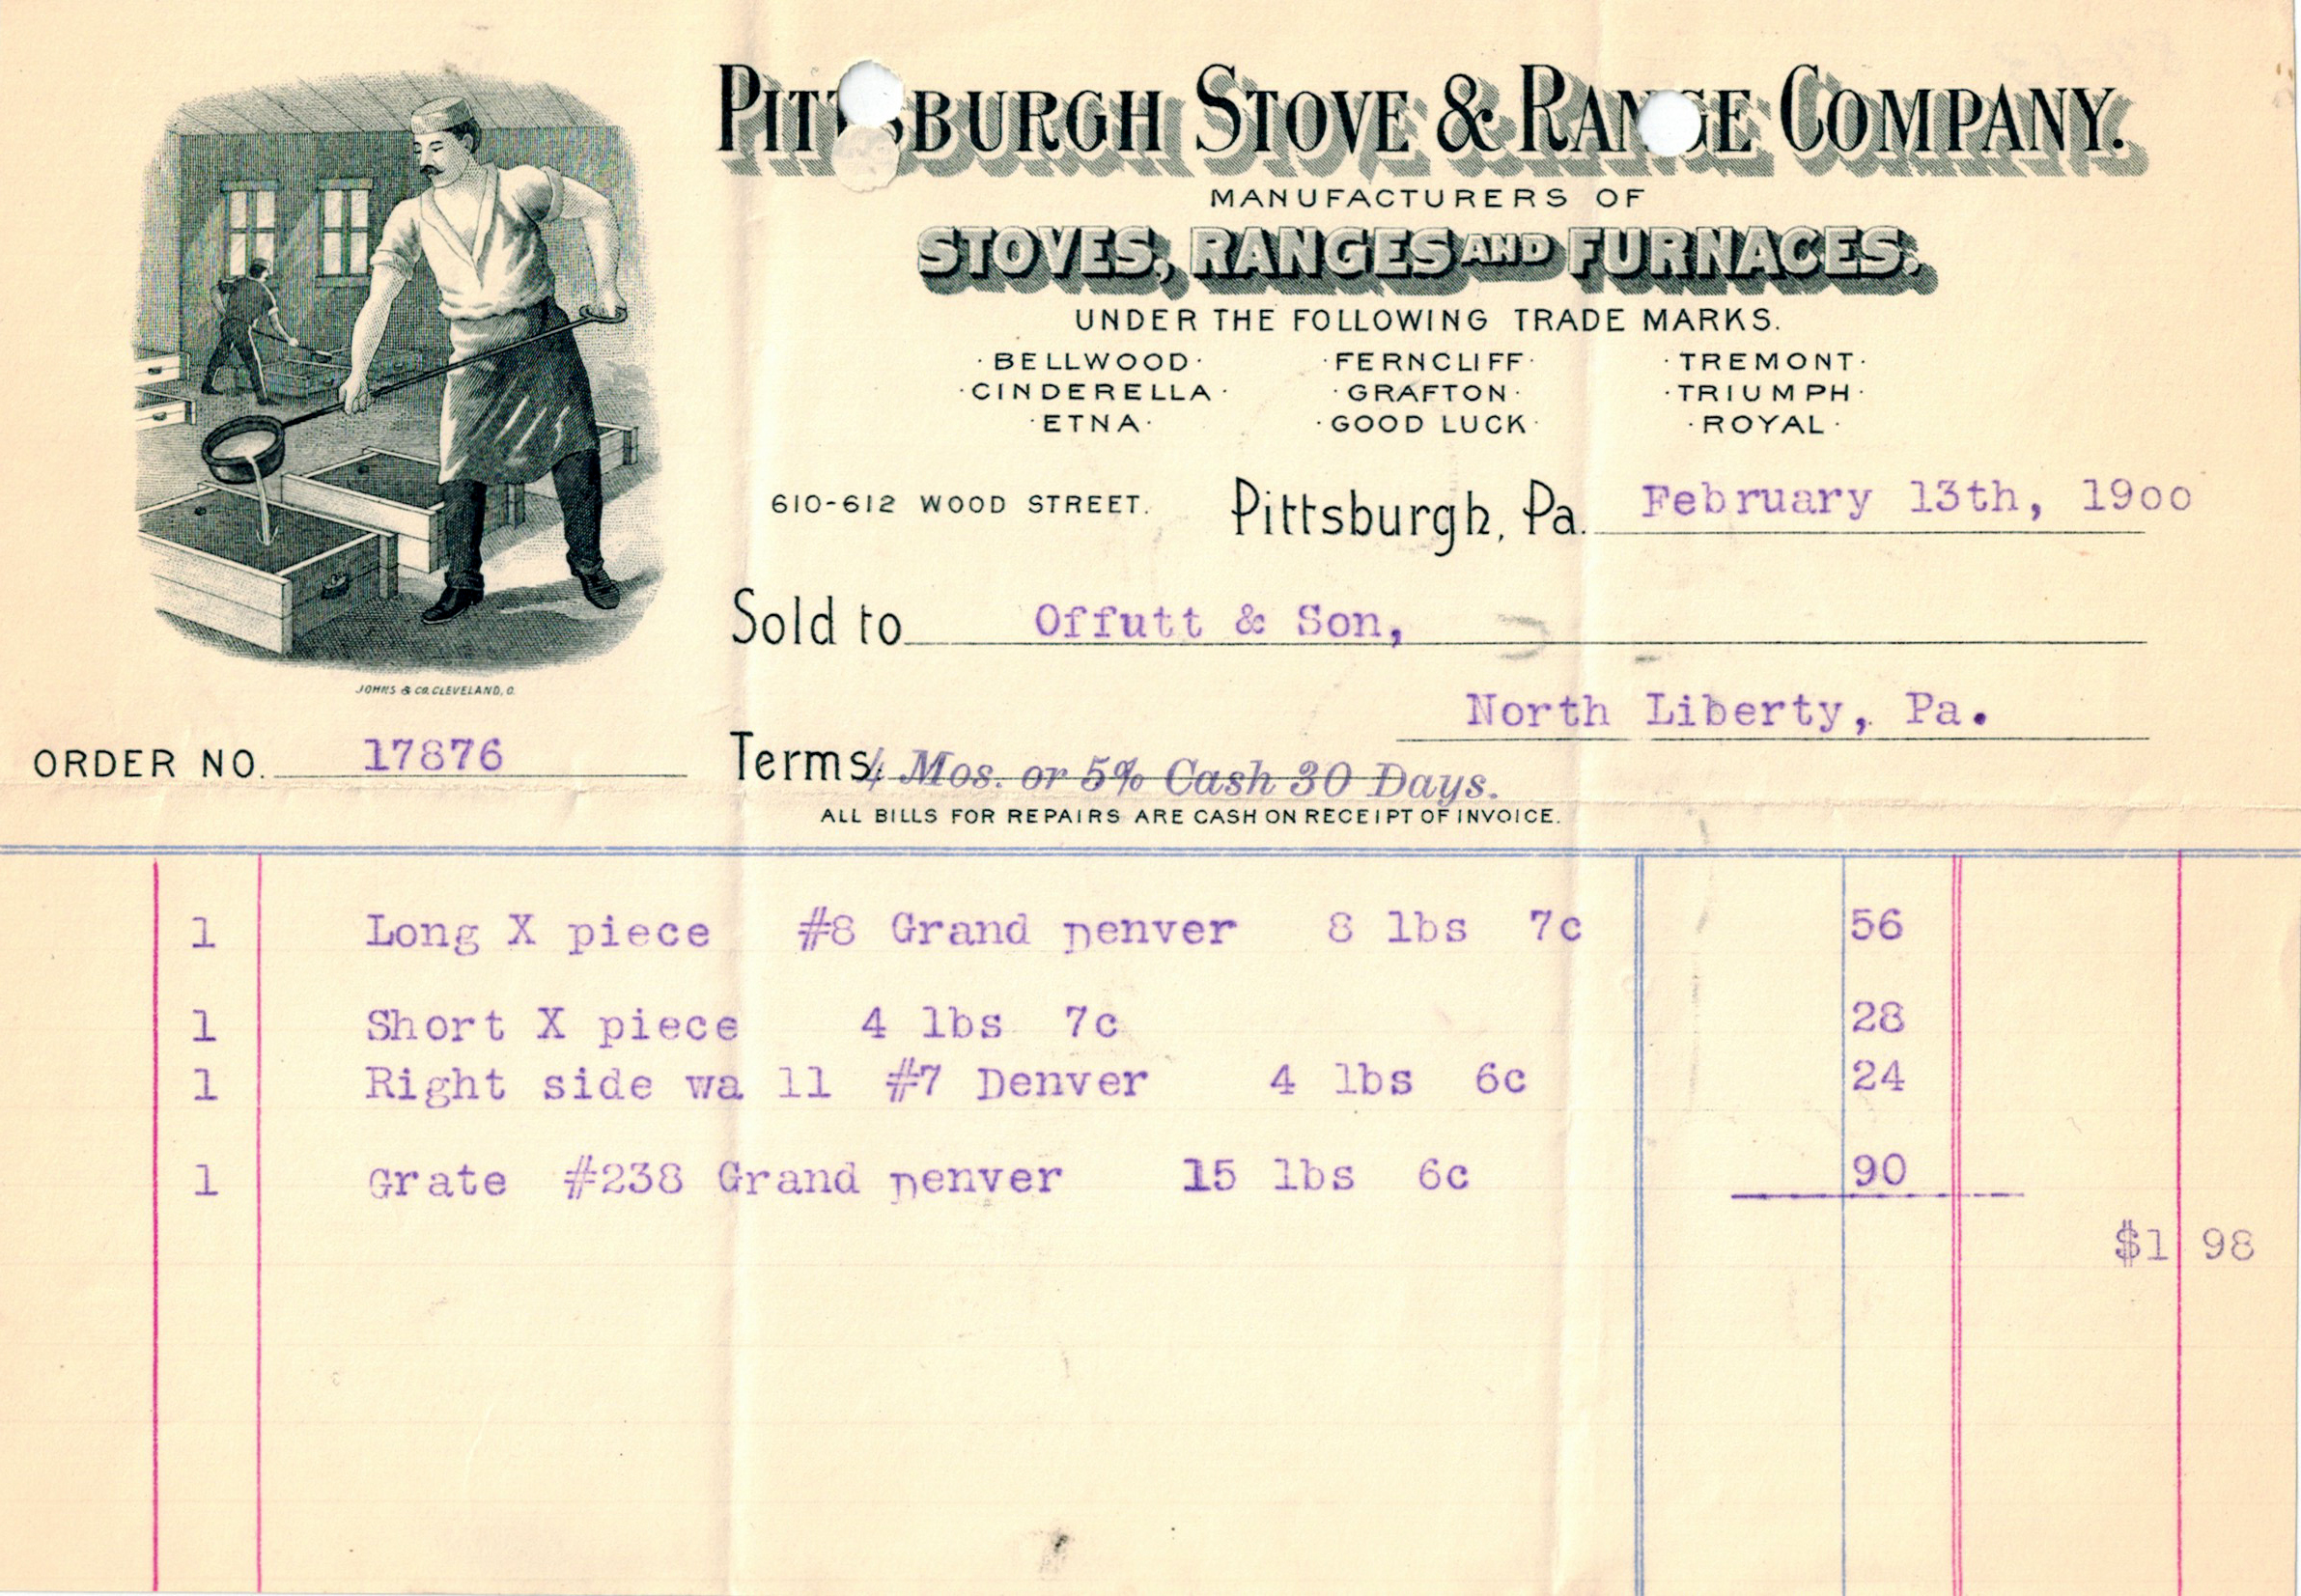 PITTSBURGH STOVE & RANGE COMPANY.
MANUFACTURERS OF
STOVES, RANGES AND FURNACES.
UNDER THE FOLLOWING TRADE MARKS.
·BELLWOOD· ·FERNCLIFF· ·TREMONT·
·CINDERELLA· ·GRAFTON· ·TRIUMPH·
·ETNA· ·GOOD LUCK· ·ROYAL·
610-612 WOOD STREET. Pittsburgh, Pa. February 13th, 1900
Sold to Offutt & Son,
JOHNS & CO. CLEVELAND, O.
North Liberty, Pa.
ORDER NO. 17876 Terms: 4 Mos. or 5% Cash 30 Days.
ALL BILLS FOR REPAIRS ARE CASH ON RECEIPT OF INVOICE.
1 Long X piece #8 Grand Denver 8 lbs 7c 56
1 Short X piece 4 lbs 7c 28
1 Right side wa ll #7 Denver 4 lbs 6c 24
1 Grate #238 Grand Denver 15 lbs 6c 90
$1 98